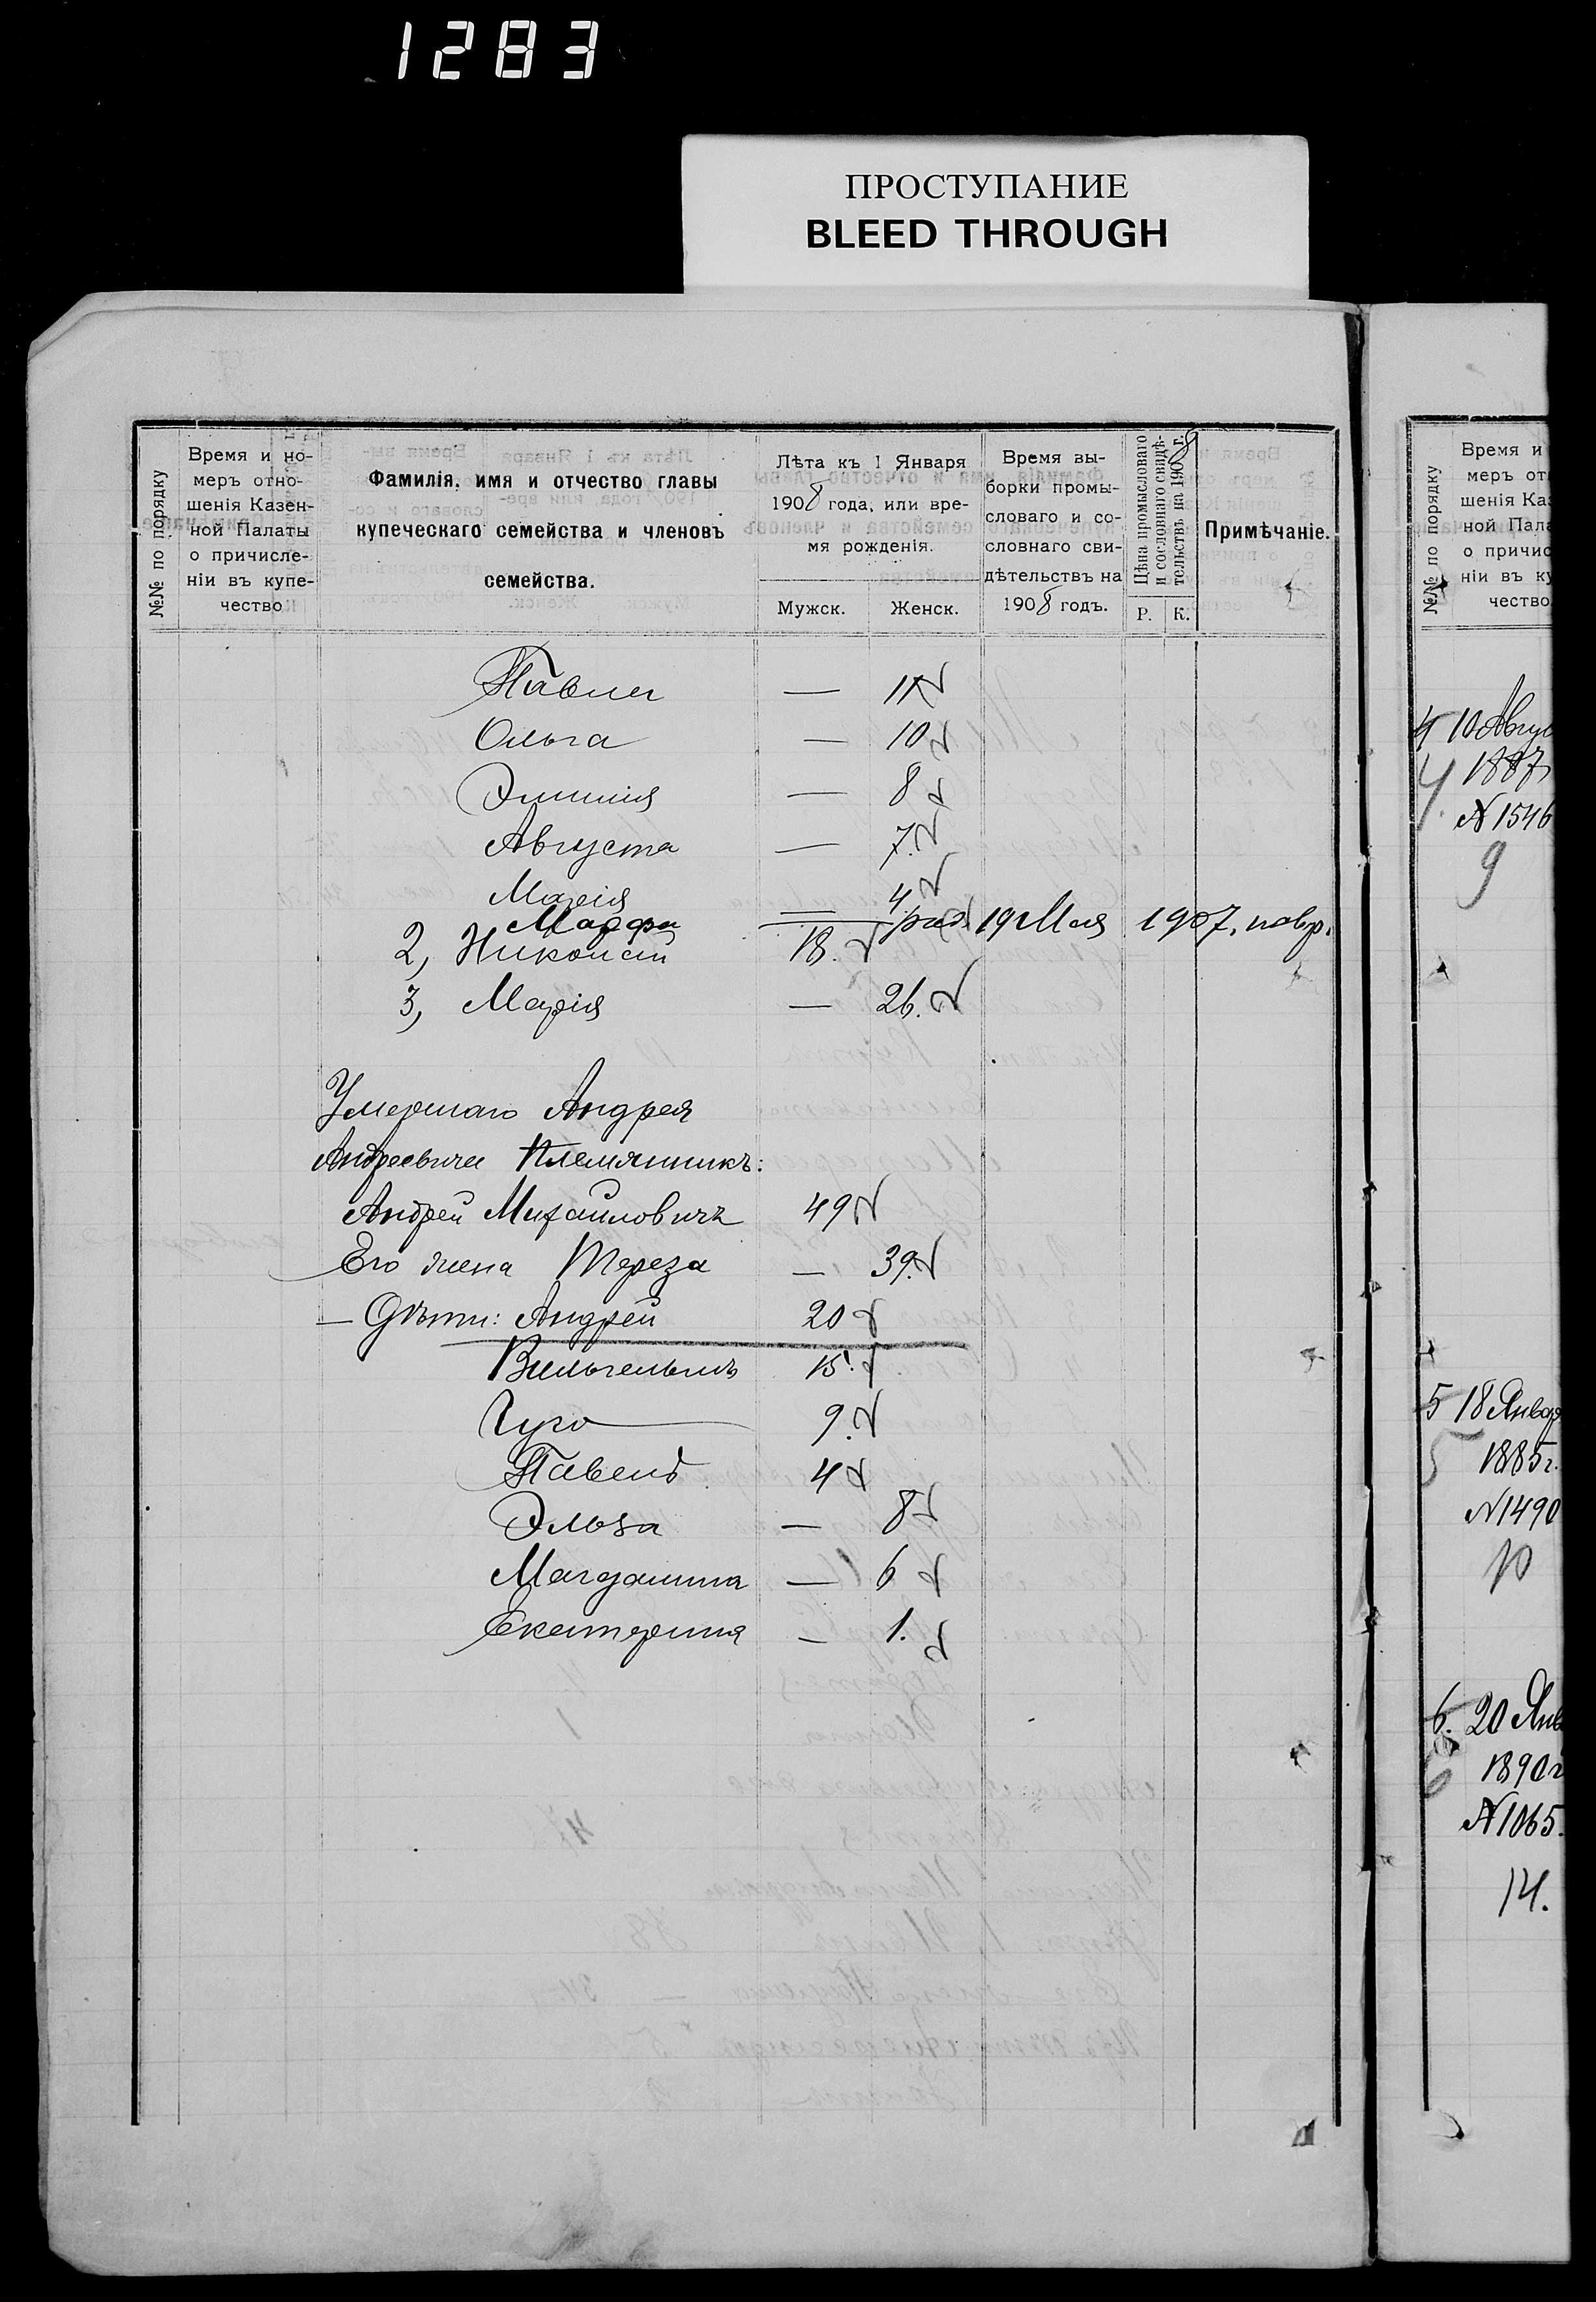 1283
ПРОСТУПАНИЕ
BLEED THROUGH
№№ по порядку
Время и но-
меръ отно-
шенія Казен-
ной Палаты
о причисле-
ніи въ купе-
чество
Фамилія, имя и отчество главы
купеческаго семейства и членовъ
семейства.
Лѣта къ 1 Января
1908 года, или вре-
мя рожденія.
Мужск. Женск.
Время вы-
борки промы-
словаго и со-
словнаго сви-
дѣтельствъ на
1908 годъ.
Цѣна промысловаго
и сословнаго свидѣ-
тельствъ на 1908 г.
Р. К.
Примѣчаніе.
Павла — 11
Ольга — 10
Эмилія — 8
Августа — 7.
Марія — 4
Марфа — род. 19 Мая 1907.
2, Николай 18.
3, Марія — 26.
Умершаго Андрея
Андреевича племянникъ:
Андрей Михайловичъ 49
Его жена Тереза — 39.
— Дѣти: Андрей 20
Вильгельмъ 15.
Гуго 9.
Павелъ 4
Эльза — 8
Магдалина — 6
Екатерина — 1.
№№ по порядку
Время и
меръ от
шенія Каз
ной Пала
о причис
ніи въ ку
чество
4 10 Авгус
4. 1887
N 1546
9
5 18 Январ
5 1885 г.
N 1490
10
6. 20 Янв
6 1890 г
N 1065.
14.